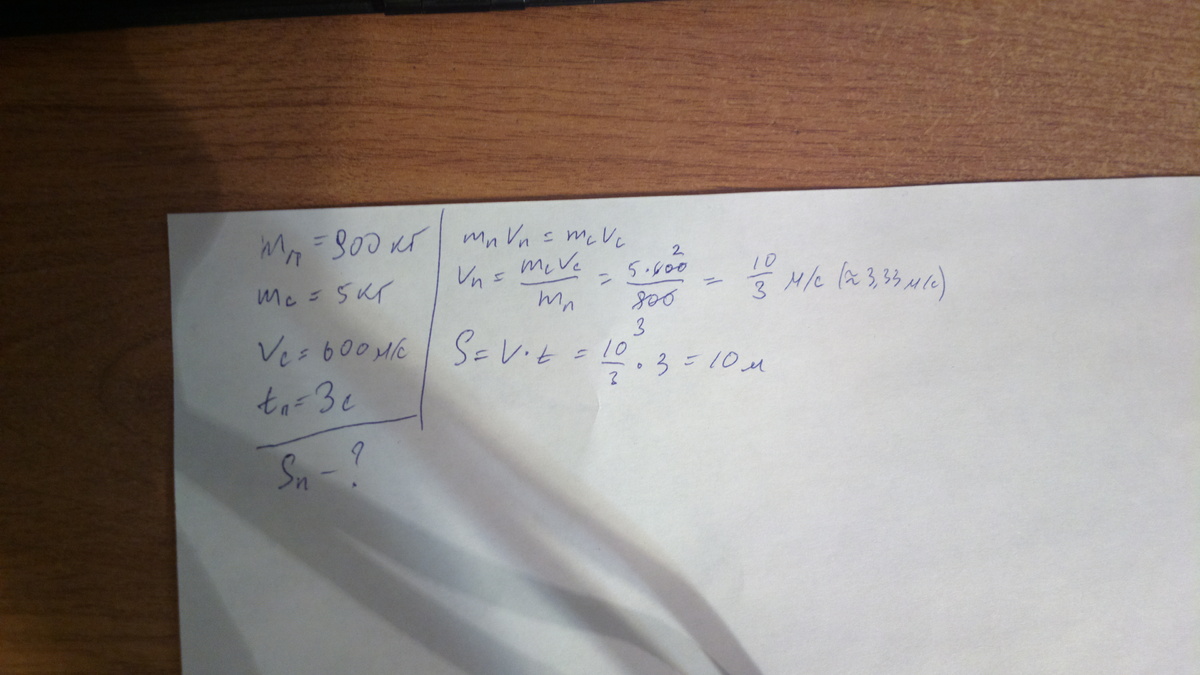 mп = 900 кг
mс = 5 кг
Vс = 600 м/с
tп = 3 с
Sп - ?
mп Vп = mс Vс
Vп = mс Vс / mп = 5 · 600 2 / 900 3 = 10/3 м/с (≈ 3,33 м/с)
S = V · t = 10/3 · 3 = 10 м